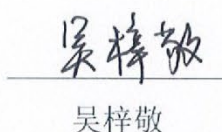 吴梓敬
吴梓敬